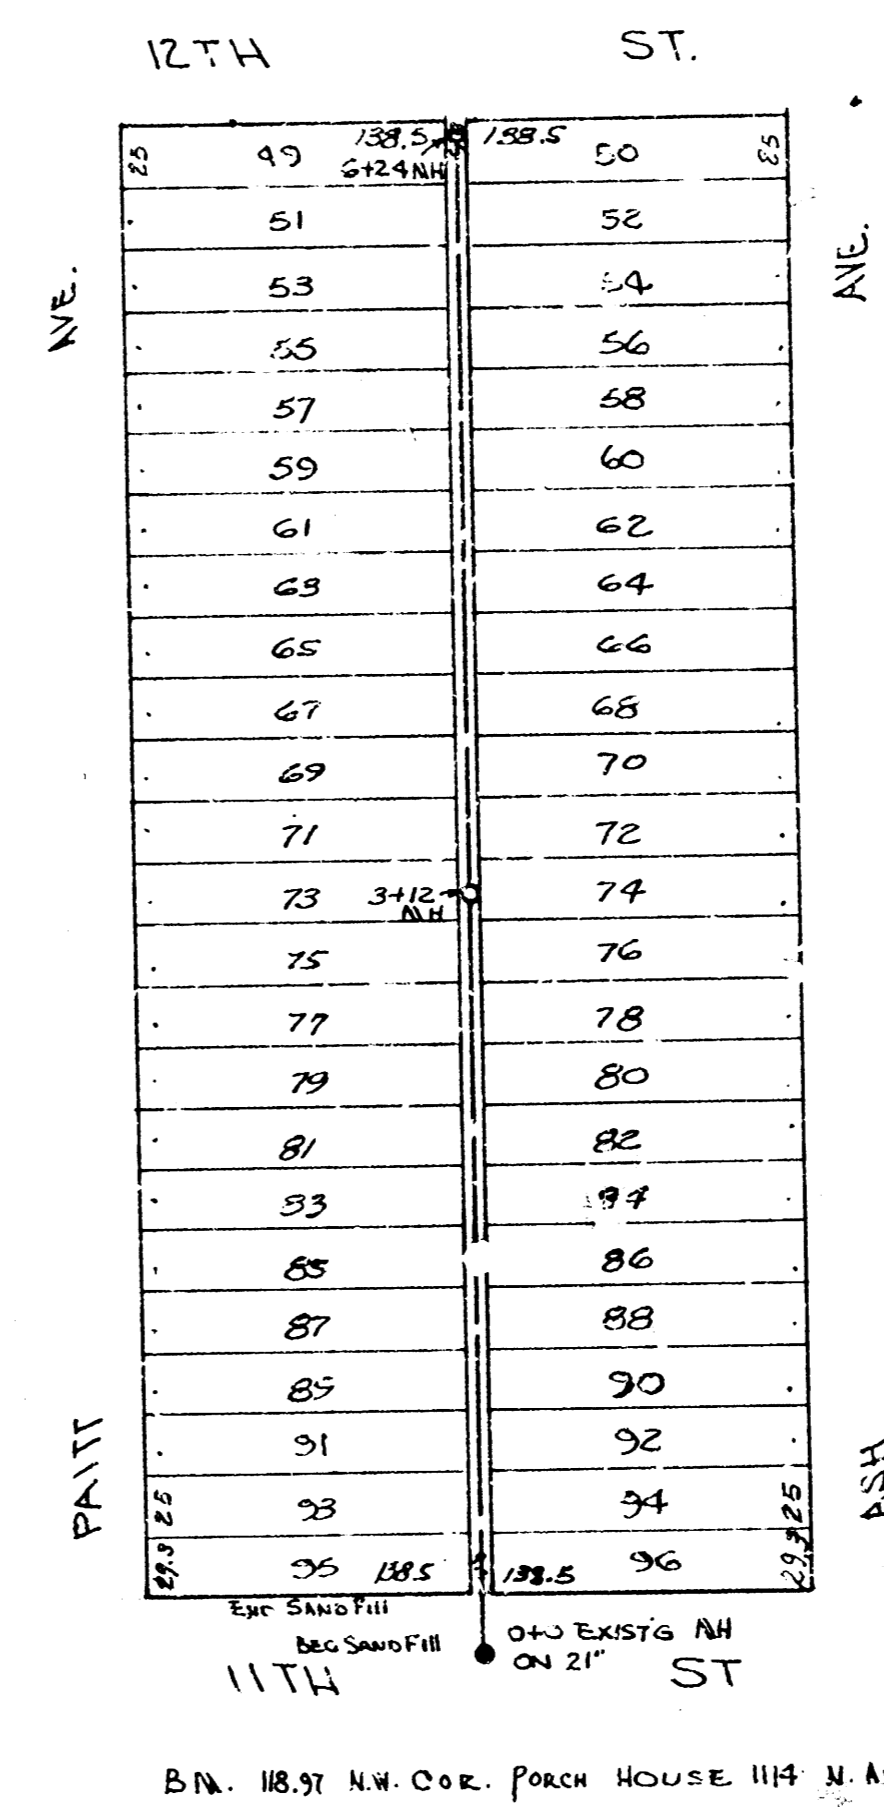 12TH ST.
25 49 138.5 138.5 50 25
6+24 MH
51 52
AVE. AVE.
53 54
55 56
57 58
59 60
61 62
63 64
65 66
67 68
69 70
71 72
73 3+12 74
MH
75 76
77 78
79 80
81 82
83 84
85 86
87 88
89 90
91 92
25 93 94 25
29.3 95 138.5 138.5 96 29.3
SAND FILL
BEG SAND FILL
EXIST'G MH
ON 21"
11TH ST
BM. 118.97 N.W. COR. PORCH HOUSE 1114 N.